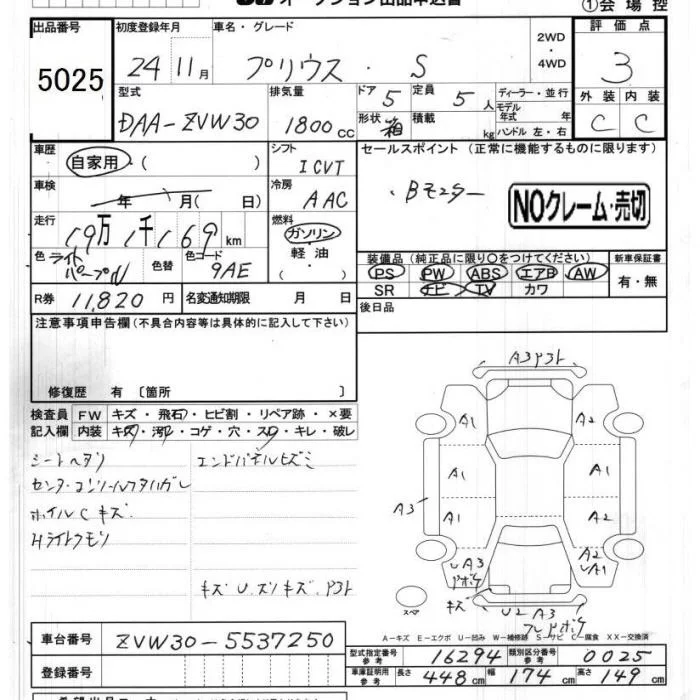 オークション出品申込書
①会場控
出品番号 初度登録年月 車名・グレード 評価点
5025 24 11月 プリウス・S 2WD・4WD 3
型式 排気量 ドア 定員 ディーラー・並行 外装 内装
DAA-ZVW30 1800cc 5 5人 モデル年式 年 C C
形状 箱 積載 kg ハンドル 左・右
車歴 自家用・( ) シフト ICVT セールスポイント(正常に機能するものに限ります)
車検 年 月(日) 冷房 AAC ・Bモニター NOクレーム・売切
走行 19万1千169km 燃料 ガソリン・軽油・( )
色 ライトパープル 色替 色コード 9AE
装備品(純正品に限り○をつけてください) 新車保証書
PS PW ABS エアB AW 有・無
SR ナビ TV カワ
R券 11,820円 名変通知期限 月 日 後日品
注意事項申告欄(不具合内容等は具体的に記入して下さい)
修復歴 有〔箇所 〕
検査員 FW キズ・飛石・ヒビ割・リペア跡・×要
記入欄 内装 キズ・汚れ・コゲ・穴・スレ・キレ・破レ
シートヘタリ エンドパネルヒズミ
センターコンソールフタハガレ
ホイルCキズ
Hライトクモリ
キズ U.ズリキズ.アスレ
A1 A2
A1 A1
A3 A1 A1
A2
A1
キズ U2 A3
スペア
A-キズ E-エクボ U-凹み W-補修跡 S-サビ C-腐食 XX-交換済
車台番号 ZVW30-5537250
登録番号
型式指定番号 参考 16294 類別区分番号 参考 0025
車庫証明用 参考 長さ 448cm 幅 174cm 高さ 149cm